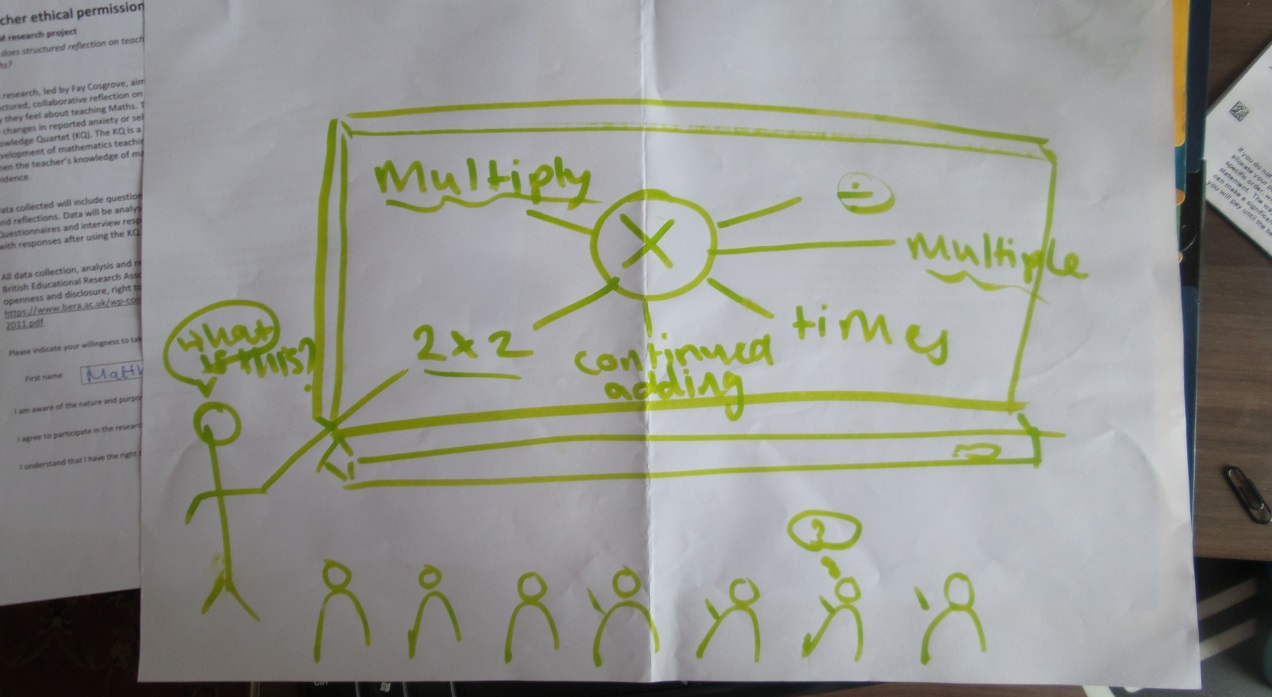 cher ethical permission
research project
does structured reflection on teach
hs?
research, led by Fay Cosgrove, aim
ctured, collaborative reflection on
they feel about teaching Maths. T
changes in reported anxiety or sel
owledge Quartet (KQ). The KQ is a
velopment of mathematics teachi
en the teacher's knowledge of ma
idence.
ata collected will include question
nd reflections. Data will be analys
Questionnaires and interview resp
with responses after using the KQ
All data collection, analysis and re
British Educational Research Asso
openness and disclosure, right to
https://www.bera.ac.uk/wp-con
2011.pdf
Please indicate your willingness to tak
First name
Matth
I am aware of the nature and purpo
I agree to participate in the resear
I understand that I have the right t
Multiply
×
÷
Multiple
2 × 2
continued
adding
times
what
is this?
?
If you do not
allocate your
specific order
statement. The
can make a significa
you will pay until the ba